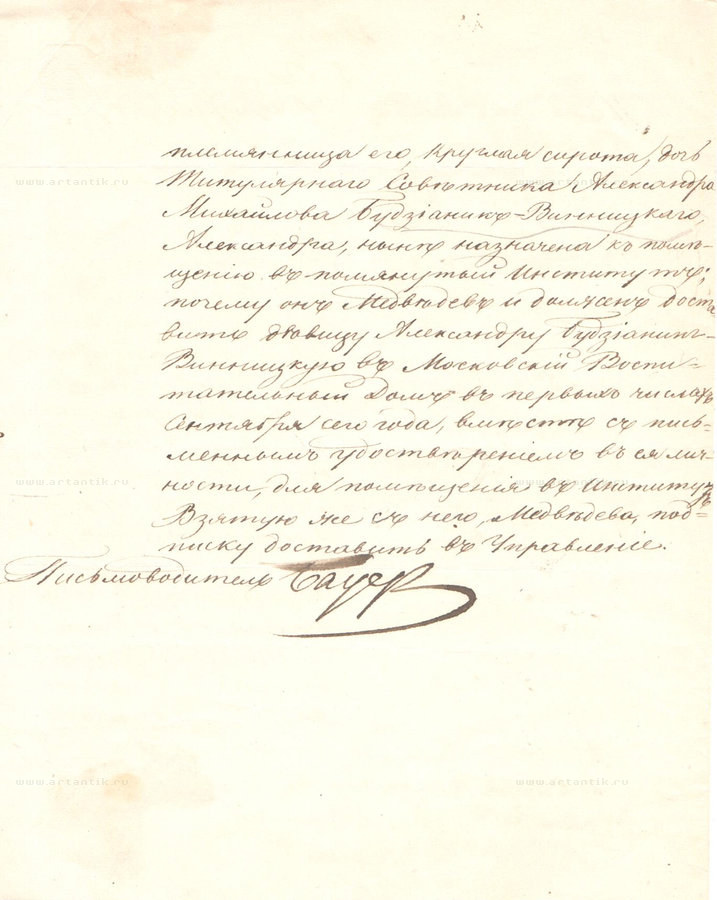 племянница его, круглая сирота, дочь
Титулярнаго Совѣтника Александра
Михайлова Будзіанинъ-Винницкаго,
Александра, нынѣ назначена къ помѣ-
щенію въ помянутый Институтъ;
почему онъ Медвѣдевъ и долженъ доста
вить дѣвицу Александру Будзіанинъ-
Винницкую въ Московскій Воспи-
тательный Домъ въ первыхъ числахъ
Сентября сего года, вмѣстѣ съ пись-
меннымъ удостовѣреніемъ въ ея лич
ности, для помѣщенія въ Институтъ
Взятую же съ него, Медвѣдева, под-
писку доставить въ Управленіе.
Письмоводитель Бауер
www.artantik.ru www.artantik.ru
www.artantik.ru www.artantik.ru
www.artantik.ru www.artantik.ru